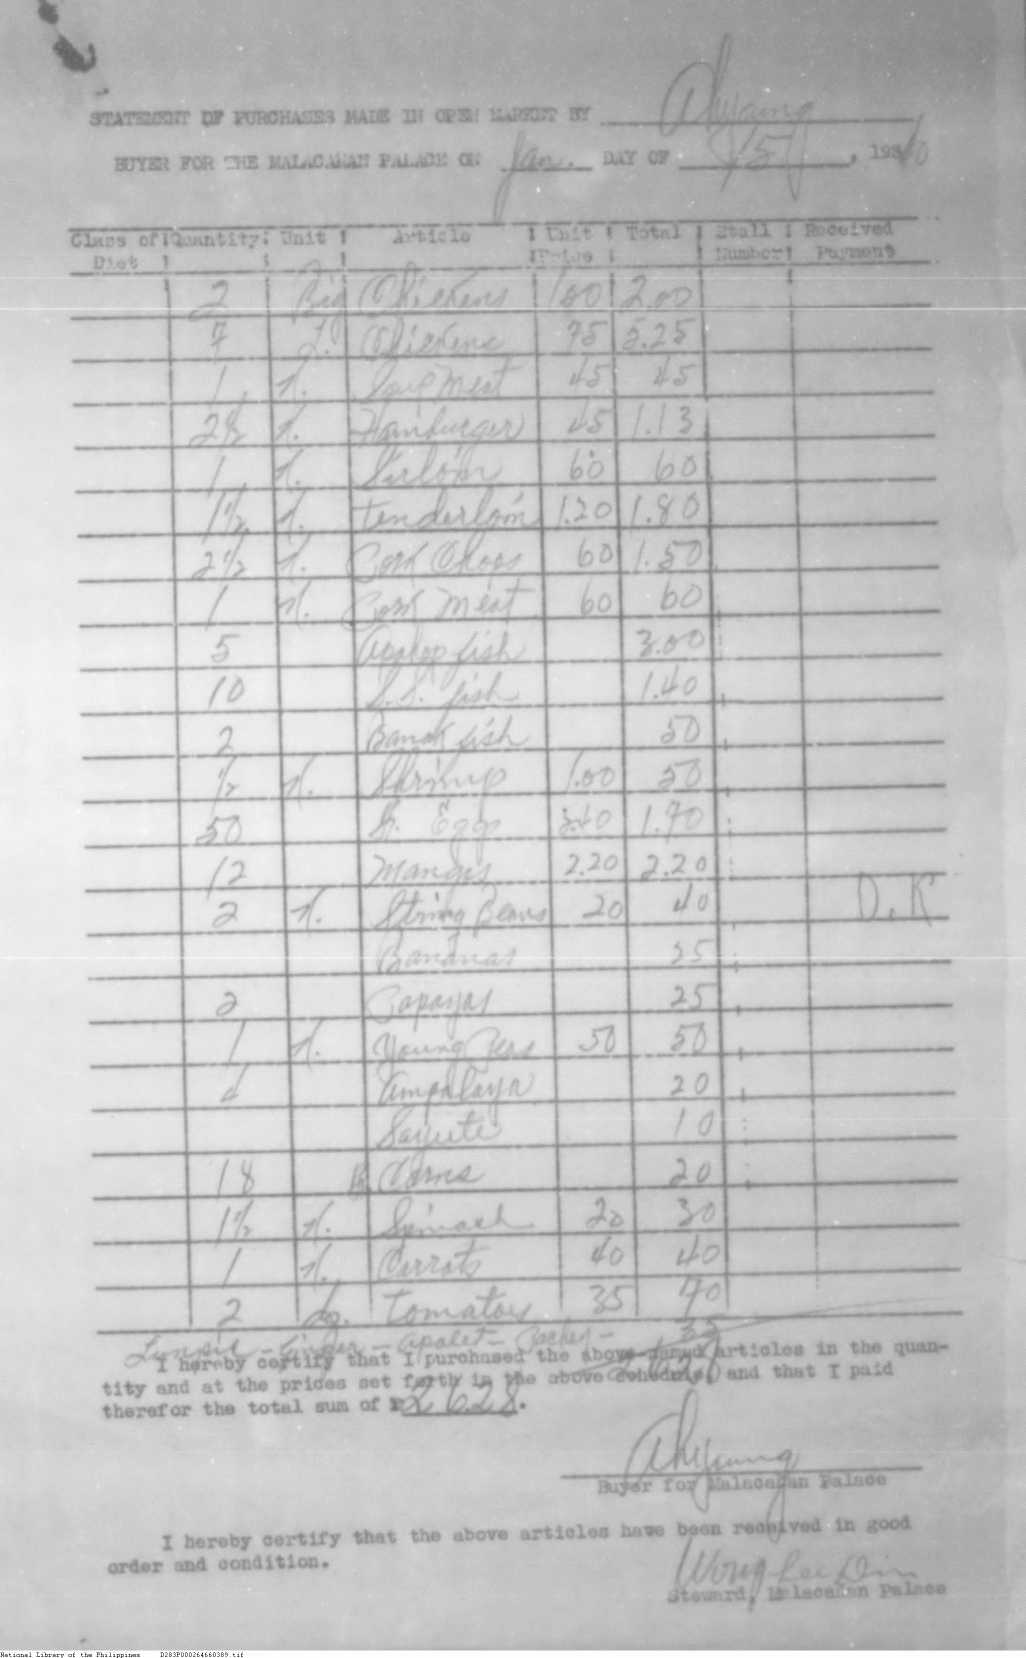 STATEMENT OF PURCHASES MADE IN OPEN MARKET BY Ah Young
BUYER FOR THE MALACAÑAN PALACE ON Jan. DAY OF 15, 1940
Class of Diet Quantity Unit Article Unit Price Total Stall Number Received Payment
2 Big Chickens 1.00 2.00
7 L. Chickens 75 5.25
1 K. Soup Meat 45 45
2½ K. Hamburger 45 1.13
1 K. Sirloin 60 60
1½ K. Tenderloin 1.20 1.80
2½ K. Pork Chops 60 1.50
1 K. Pork Meat 60 60
5 Apahap fish 3.00
10 S.S. fish 1.40
2 Banak fish 50
½ K. Shrimp 1.00 50
50 Eggs 3.40 1.70
12 Mangos 2.20 2.20
2 K. String Beans 20 40 O.K
Bananas 25
2 Papayas 25
1 K. Young Peas 50 50
4 Ampalaya 20
Sayute 10
18 Corns 20
1½ K. Spinach 20 30
1 K. Carrots 40 40
2 Tomatoes 35 70
Ginger - 35
I hereby certify that I purchased the above named articles in the quan-
tity and at the prices set forth in the above schedule, and that I paid
therefor the total sum of ₱26.28.
Ah Young
Buyer for Malacañan Palace
I hereby certify that the above articles have been received in good
order and condition.
Wong
Steward, Malacañan Palace
National Library of the Philippines D283P000264660389.tif